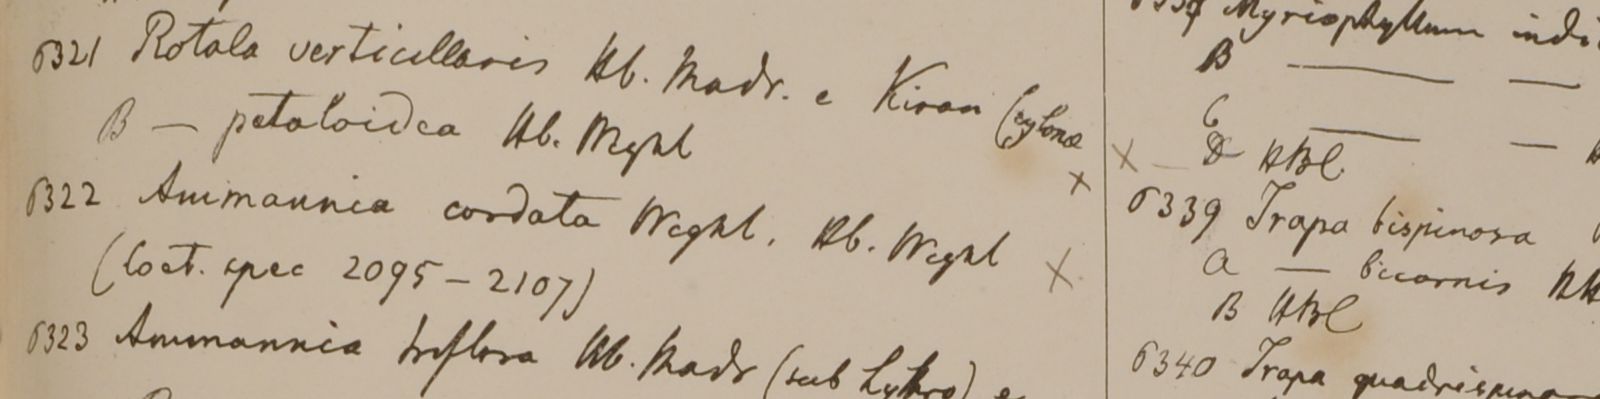 6321 Rotala verticillaris Hb. Madr. e Kiran
B — petaloidea Hb. Wghl
6322 Ammannia cordata Wghl. Hb. Wghl
(Coct. spec 2095 – 2107)
6323 Ammannia triflora Hb. Madr (sub Lythro)
Myriophyllum
B
C
D HBC.
6339 Trapa bispinosa
a — bicornis
B HBC
6340 Trapa